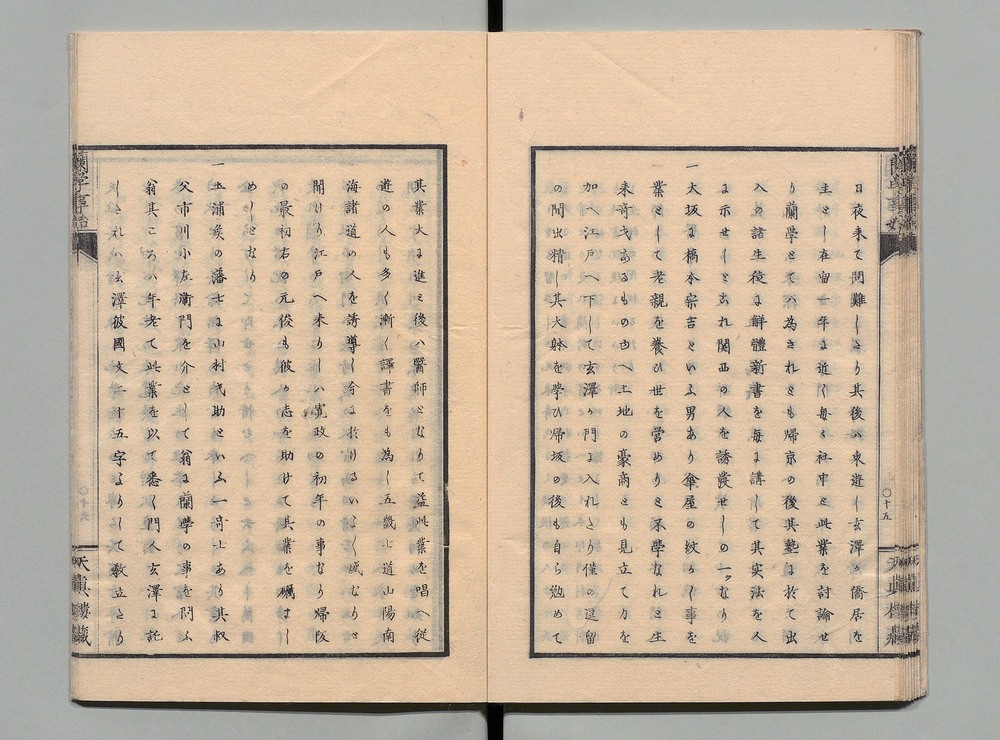 日夜来て問難しとり其後ハ東遊し玄澤か僑居を
主とし在留一年に近く毎々社中と此業を討論せ
り蘭學とてハ為されとも帰京の後其塾に於て出
入の諸生徒に解體新書を毎に講して其実法を人
に示せしとされ関西の人を誘發せしの一ツなり
一大坂に橋本宗吉といふ男あり傘屋の紋かく事を
業として老親を養ひ世を営めりと不學なれと生
来奇才あるものゆへ土地の豪商とも見立て力を
加へ江戸へ下して玄澤か門に入れとり僅の逗留
の間出精し其大躰を学ひ帰坂の後も自ら勉めて
其業大に進ミ後ハ醫師となりて益此業を唱へ従
遊の人も多く漸く譯書をも為し五畿七道山陽南
海諸道の人を誘導し今に於ゐるいよ〱盛なりと
聞けり江戸へ来りしハ寛政の初年の事なり帰阪
の最初右の元俊も彼か志を助けて其業を礪まし
めりとなり
一土浦侯の藩士に山村才助といふ一奇士あり其叔
父市川小左衞門を介として翁に蘭學の事を問ふ
翁其ころハ年老て此業を以て悉く門人玄澤に託
しされハ玄澤彼國文二十五字よりして教立とり
蘭学事始
〇十五
天真樓藏
蘭学事始
〇十六
天真樓藏